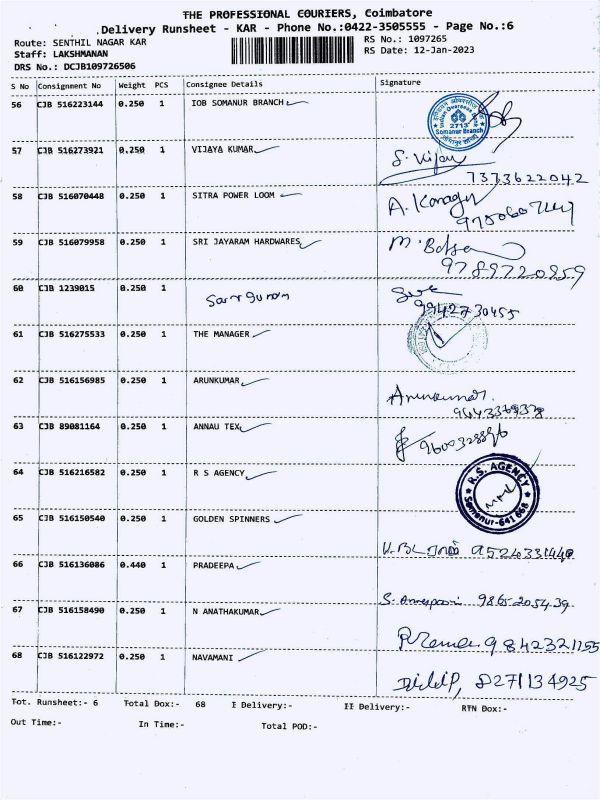 THE PROFESSIONAL COURIERS, Coimbatore
Delivery Runsheet - KAR - Phone No.:0422-3505555 - Page No.:6
Route: SENTHIL NAGAR KAR
RS No.: 1097265
Staff: LAKSHMANAN
RS Date: 12-Jan-2023
DRS No.: DCJB109726506
S No Consignment No Weight PCS Consignee Details Signature
56 CJB 516223144 0.250 1 IOB SOMANUR BRANCH
Indian Overseas 2713 Somanur Branch
57 CJB 516273921 0.250 1 VIJAYA KUMAR S. Vijay
7373622042
58 CJB 516070448 0.250 1 SITRA POWER LOOM
59 CJB 516079958 0.250 1 SRI JAYARAM HARDWARES
9789720859
60 CJB 1239015 0.250 1
9942730455
61 CJB 516275533 0.250 1 THE MANAGER
62 CJB 516156985 0.250 1 ARUNKUMAR Arunkumar.
63 CJB 89081164 0.250 1 ANNAU TEX
64 CJB 516216582 0.250 1 R S AGENCY
R.S. AGENCY Somanur-641 668
65 CJB 516150540 0.250 1 GOLDEN SPINNERS
9524331440
66 CJB 516136086 0.440 1 PRADEEPA
9865205439
67 CJB 516158490 0.250 1 N ANATHAKUMAR
9842321155
68 CJB 516122972 0.250 1 NAVAMANI
Dilip, 8271134925
Tot. Runsheet:- 6 Total Dox:- 68 I Delivery:- II Delivery:- RTN Dox:-
Out Time:- In Time:- Total POD:-